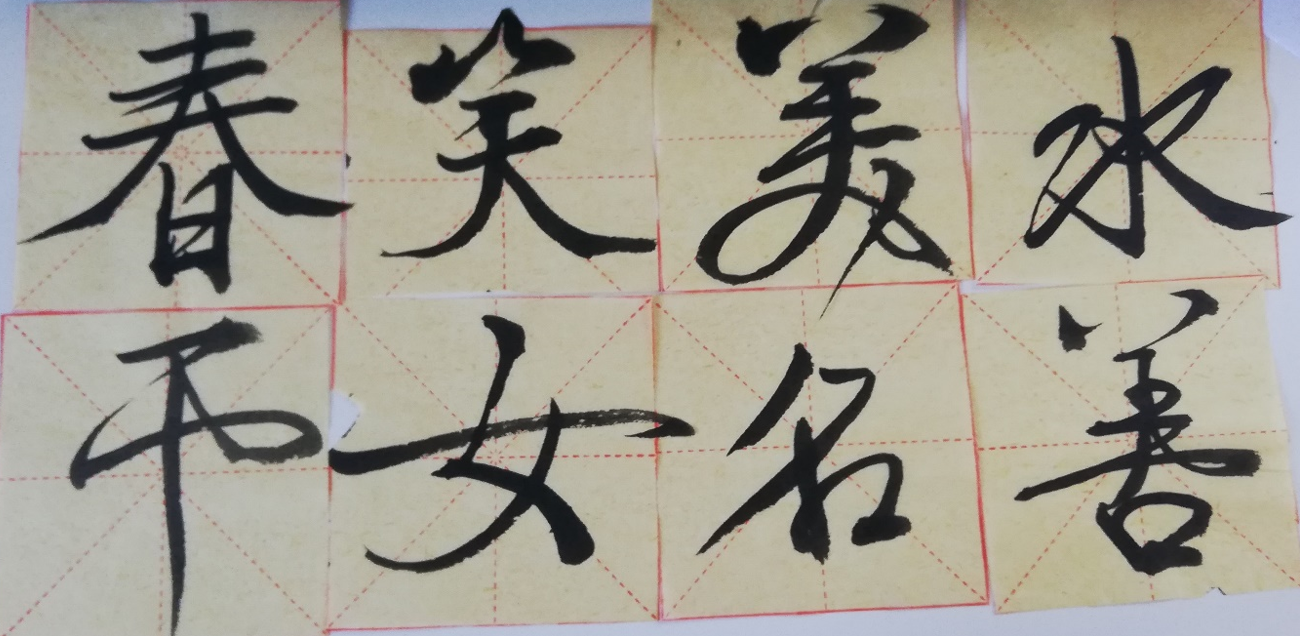 春笑美水
平女名善